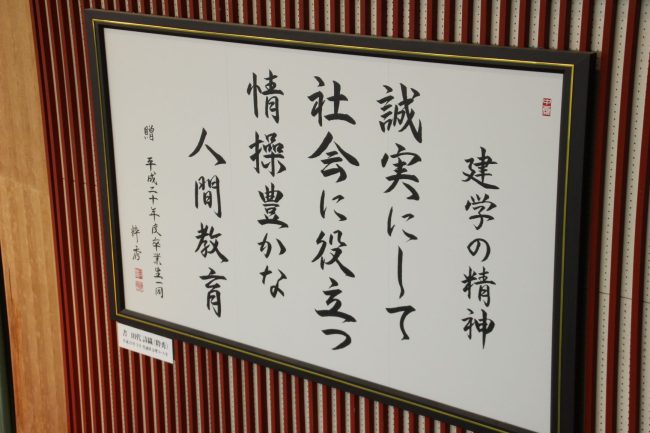 建学の精神
誠実にして
社会に役立つ
情操豊かな
人間教育
贈 平成二十年度卒業生一同